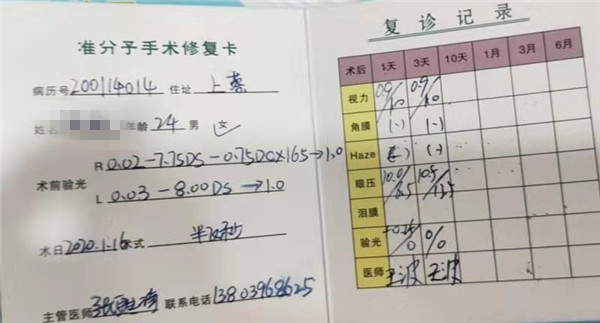 准分子手术修复卡
病历号 200114014 住址 上蔡
年龄 24 男 女
术前验光
R 0.02 -7.75DS -0.75DC×165→1.0
L 0.03 -8.00DS →1.0
术日 2020.1.16 术式 半飞秒
主管医师 联系电话 13803968625
复诊记录
术后 1天 3天 10天 1月 3月 6月
视力 0.9/1.0 0.9/1.0
角膜 (-) (-)
Haze (-) (-)
眼压
泪膜
验光 +0.25/0 0/0
医师 王波 王波